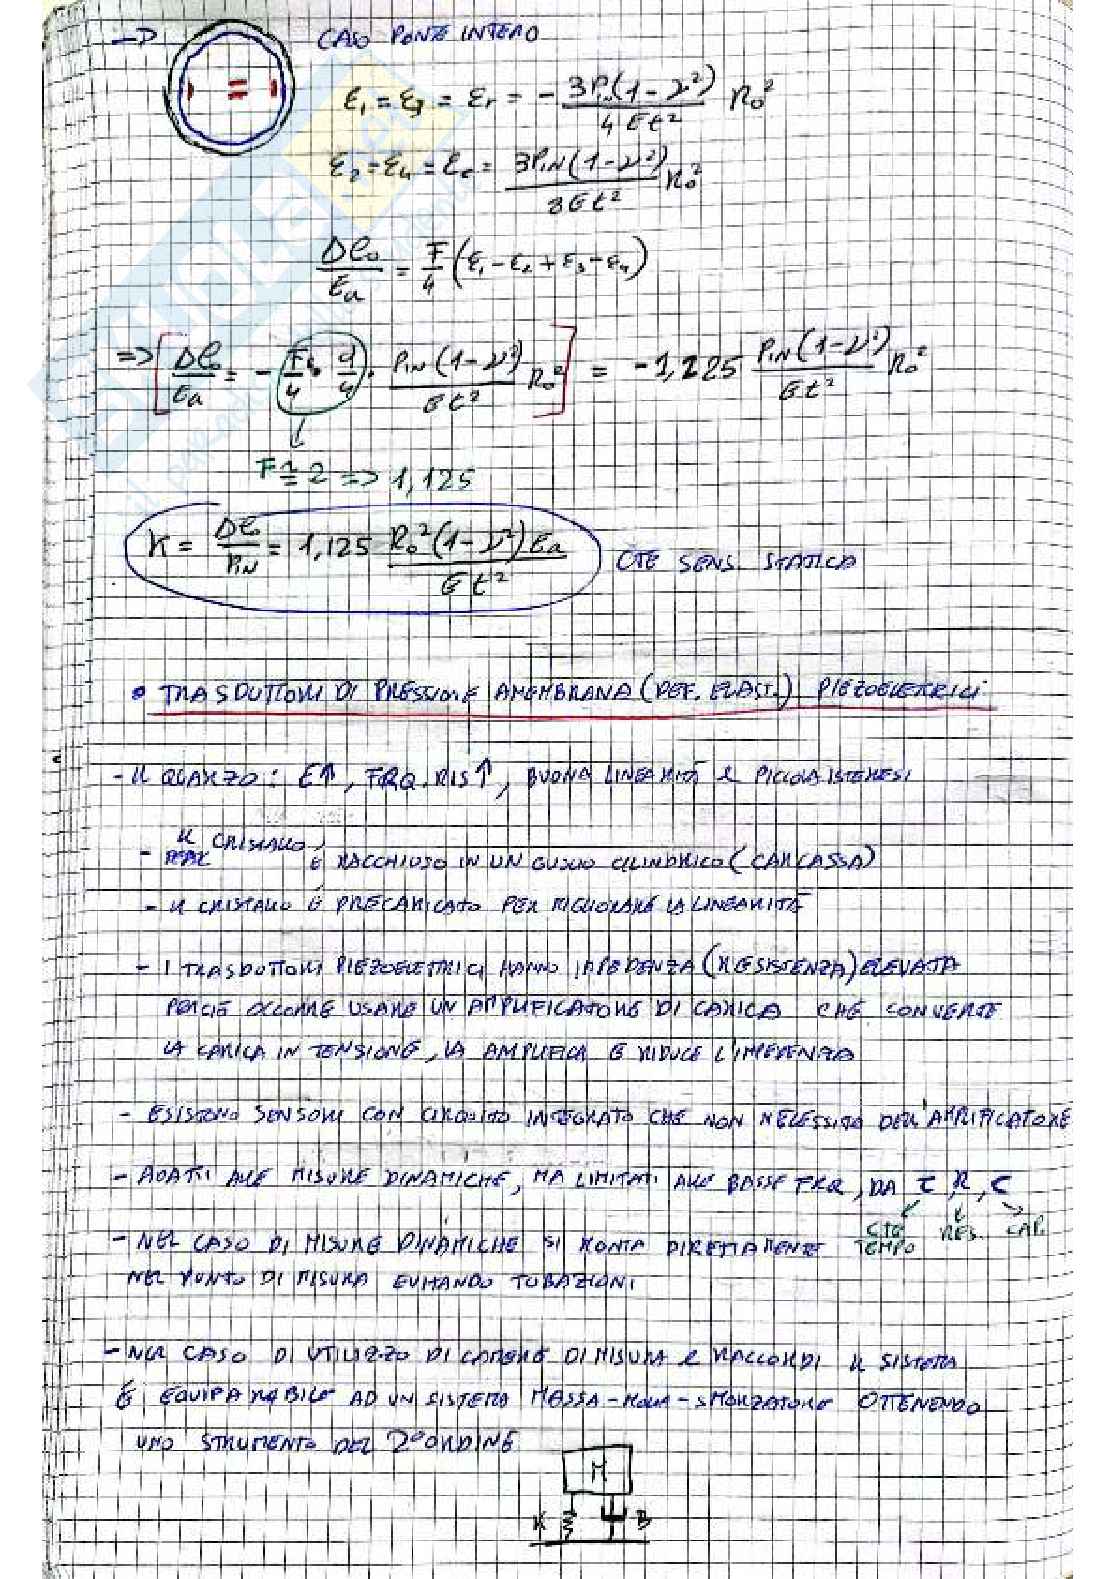 → CASO PONTE INTERO
ε₁ = ε₃ = εr = - 3Pin(1-ν²) / 4Et² R₀²
ε₂ = ε₄ = εc = 3PIN(1-ν²) / 8Et² R₀²
ΔE₀/Ea = F/4 (ε₁ - ε₂ + ε₃ - ε₄)
=> [ΔE₀/Ea = - F/4 · 9/4 · PIN(1-ν²)/Et² R₀²] = -1,225 PIN(1-ν²)/Et² R₀²
F ≐ 2 => 1,125
K = ΔE₀/PIN = 1,125 R₀²(1-ν²)Ea / Et² CTE SENS. STATICA
• TRASDUTTORI DI PRESSIONE A MEMBRANA (DEF. ELAST.) PIEZOELETTRICI
- IL QUARZO: E↑, FRQ. RIS↑, BUONA LINEARITÀ E PICCOLA ISTERESI
- IL CRISTALLO È RACCHIUSO IN UN GUSCIO CILINDRICO (CARCASSA)
- IL CRISTALLO È PRECARICATO PER MIGLIORARE LA LINEARITÀ
- I TRASDUTTORI PIEZOELETTRICI HANNO IMPEDENZA (RESISTENZA) ELEVATA
PERCIÒ OCCORRE USARE UN AMPLIFICATORE DI CARICA CHE CONVERTE
LA CARICA IN TENSIONE, LA AMPLIFICA E RIDUCE L'IMPEDENZA
- ESISTONO SENSORI CON CIRCUITO INTEGRATO CHE NON NECESSITA DELL'AMPLIFICATORE
- ADATTI ALLE MISURE DINAMICHE, MA LIMITATI ALLE BASSE FRQ, DA τ, R, C
CTE TEMPO RES. CAP.
- NEL CASO DI MISURE DINAMICHE SI MONTA DIRETTAMENTE
NEL PUNTO DI MISURA EVITANDO TUBAZIONI
- NEL CASO DI UTILIZZO DI CAMERE DI MISURA E RACCORDI IL SISTEMA
È EQUIPARABILE AD UN SISTEMA MASSA-MOLLA-SMORZATORE OTTENENDO
UNO STRUMENTO DEL 2° ORDINE
M
K B